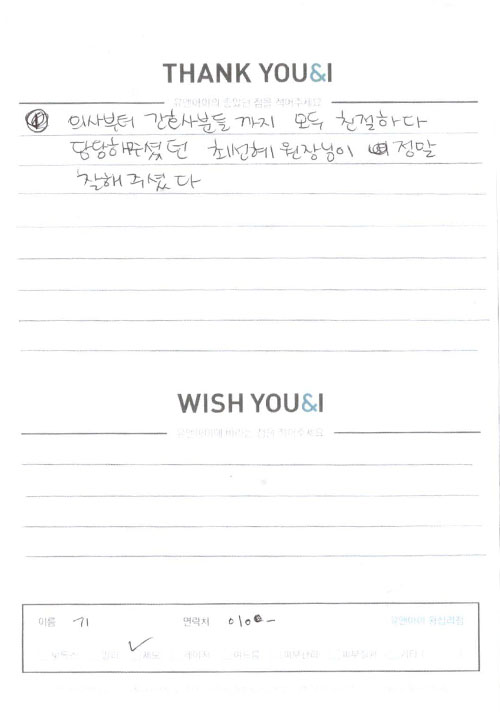 THANK YOU&I
유앤아이의 좋았던 점을 적어주세요
① 의사부터 간호사분들 까지 모두 친절하다
담당해주셨던 최선혜 원장님이 정말
잘해 주셨다
WISH YOU&I
유앤아이에 바라는 점을 적어주세요
이름 기 연락처 010-
유앤아이 왕십리점
보톡스 필러 제모 레이저 여드름 피부관리 기타